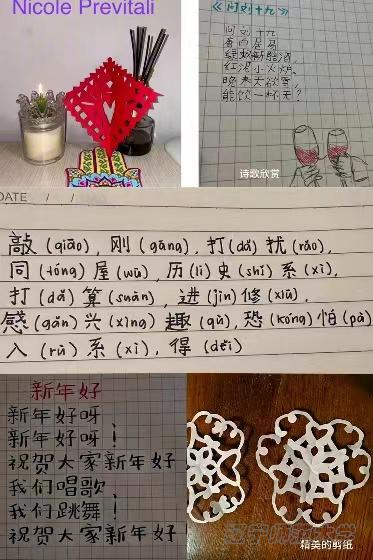 Nicole Previtali
《问刘十九》
问刘十九
白居易
绿蚁新醅酒,
红泥小火炉.
晚来天欲雪,
能饮一杯无?
诗歌欣赏
DATE / /
敲(qiāo), 刚(gāng), 打(dǎ)扰(rǎo),
同(tóng)屋(wū), 历(lì)史(shǐ)系(xì),
打(dǎ)算(suàn), 进(jìn)修(xiū),
感(gǎn)兴(xìng)趣(qù), 恐(kǒng)怕(pà)
入(rù)系(xì), 得(děi)
新年好
新年好呀!
新年好呀!
祝贺大家新年好
我们唱歌
我们跳舞!
祝贺大家新年好
辽宁师范大学
精美的剪纸